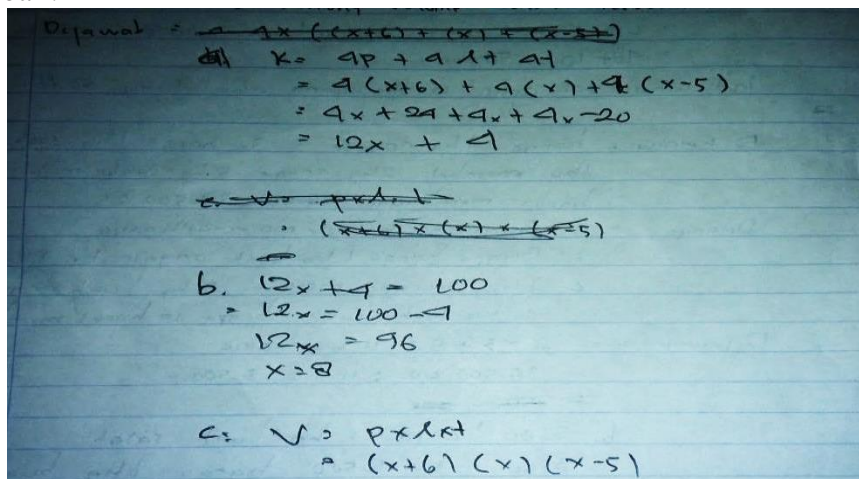 Dijawab = 4x ((x+6) + (x) + (x-5))
a) K = 4p + 4l + 4t
= 4(x+6) + 4(x) + 4(x-5)
= 4x + 24 + 4x + 4x - 20
= 12x + 4
c. V = pxlxt
= (x+6) x (x) x (x-5)
b. 12x + 4 = 100
= 12x = 100 - 4
12x = 96
x = 8
c: V = pxlxt
= (x+6) (x) (x-5)